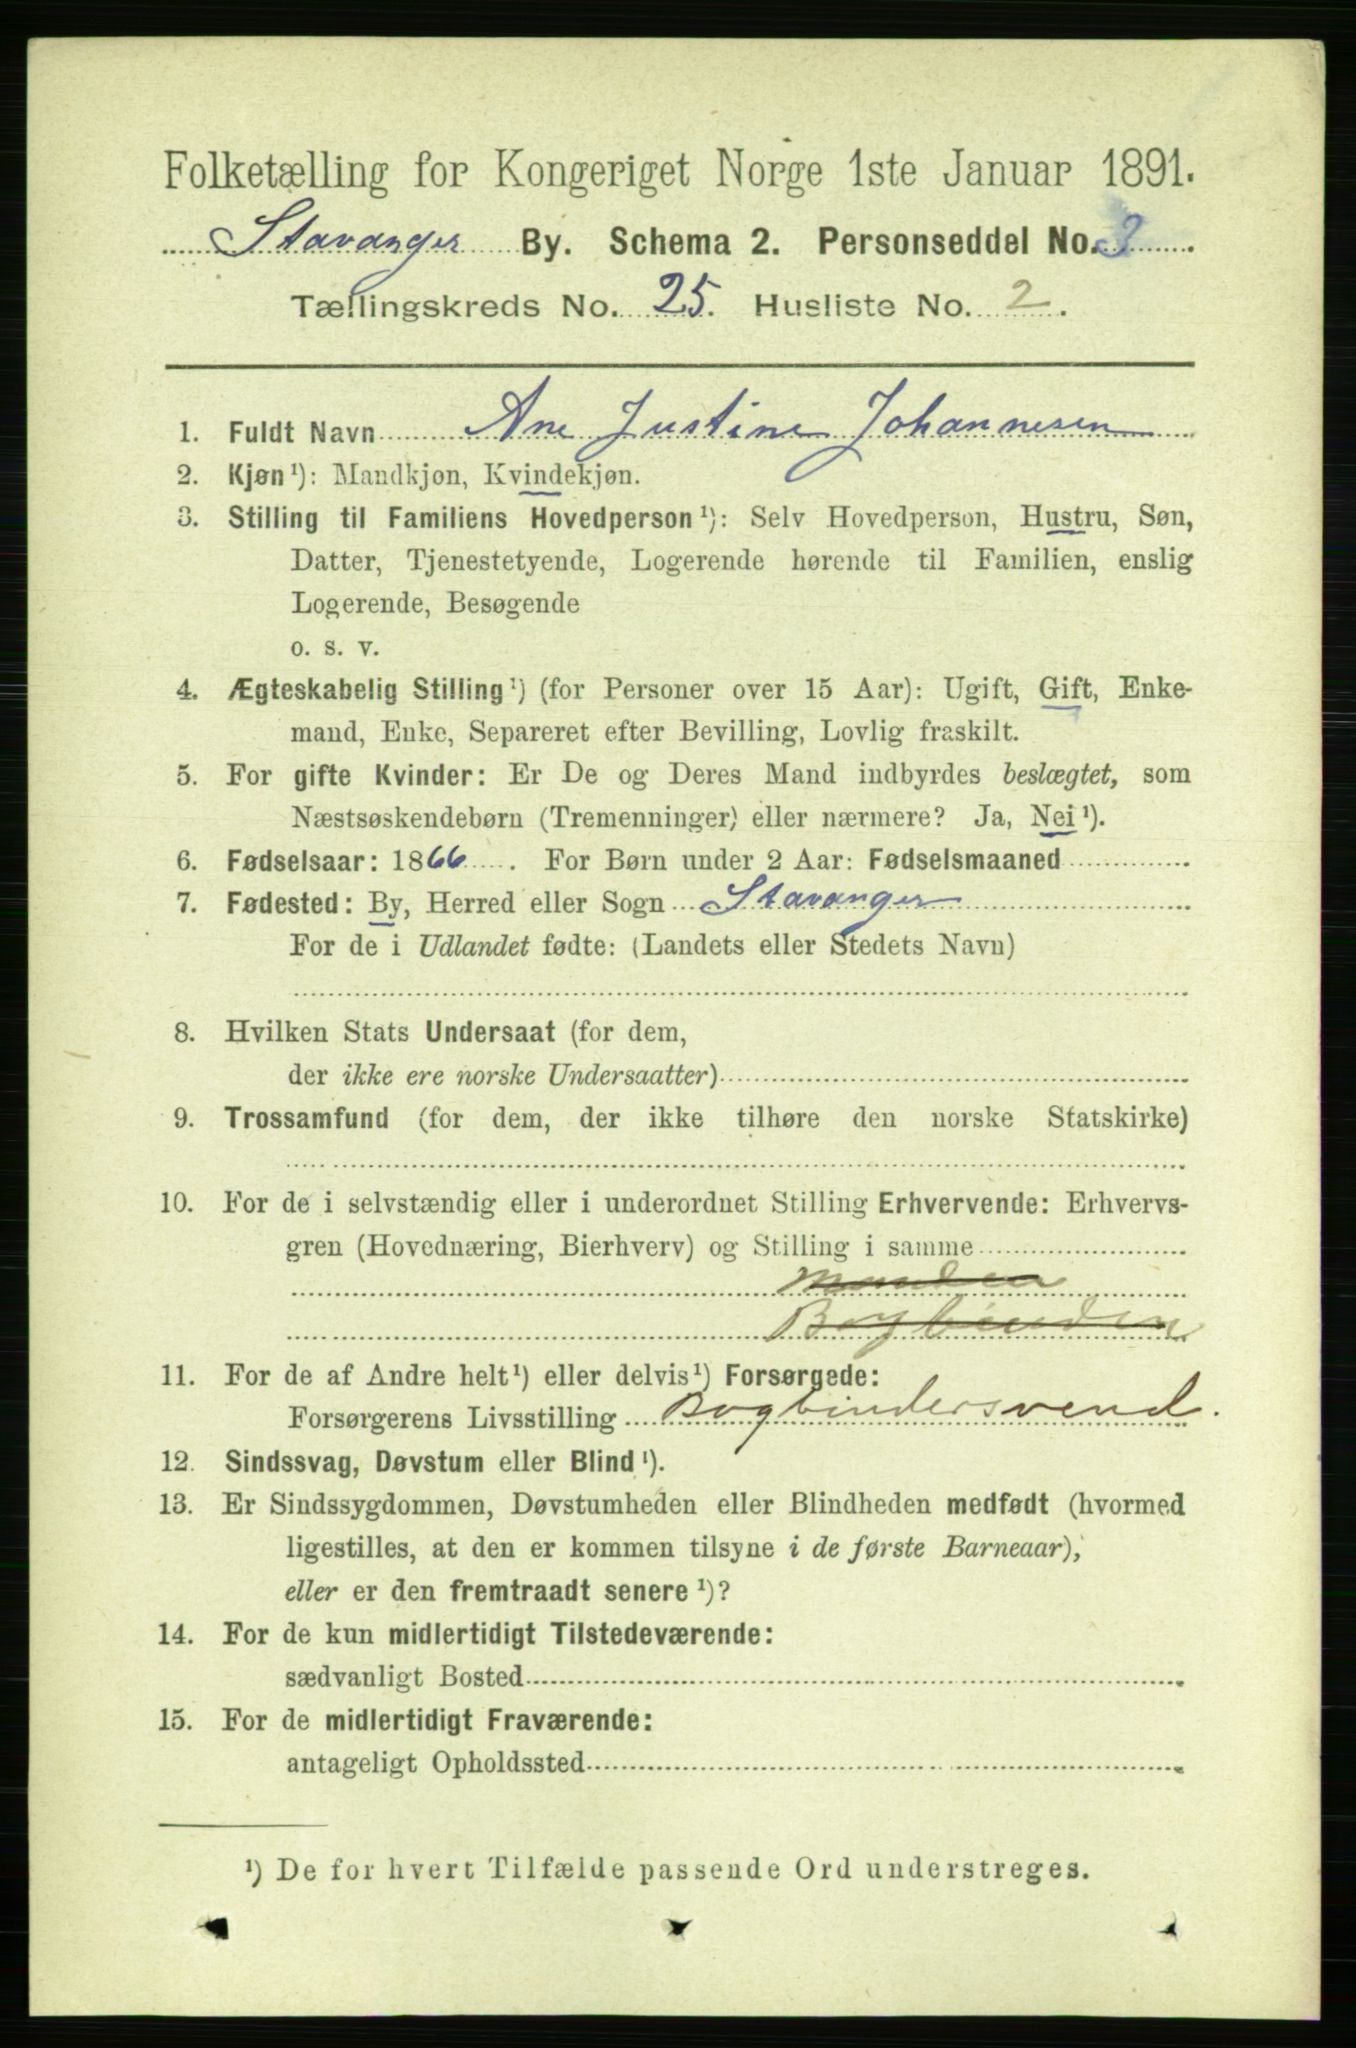 Folketælling for Kongeriget Norge 1ste Januar 1891.
Stavanger By. Schema 2. Personseddel No. 3
Tællingskreds No. 25. Husliste No. 2.
1. Fuldt Navn Ane Justine Johannesen
2. Kjøn¹): Mandkjøn, Kvindekjøn.
3. Stilling til Familiens Hovedperson¹): Selv Hovedperson, Hustru, Søn,
Datter, Tjenestetyende, Logerende hørende til Familien, enslig
Logerende, Besøgende
o. s. v.
4. Ægteskabelig Stilling¹) (for Personer over 15 Aar): Ugift, Gift, Enke-
mand, Enke, Separeret efter Bevilling, Lovlig fraskilt.
5. For gifte Kvinder: Er De og Deres Mand indbyrdes beslægtet, som
Næstsøskendebørn (Tremenninger) eller nærmere? Ja, Nei¹).
6. Fødselsaar: 1866. For Børn under 2 Aar: Fødselsmaaned
7. Fødested: By, Herred eller Sogn Stavanger
For de i Udlandet fødte: (Landets eller Stedets Navn)
8. Hvilken Stats Undersaat (for dem,
der ikke ere norske Undersaatter)
9. Trossamfund (for dem, der ikke tilhøre den norske Statskirke)
10. For de i selvstændig eller i underordnet Stilling Erhvervende: Erhvervs-
gren (Hovednæring, Bierhverv) og Stilling i samme
Manden
Bogbinder
11. For de af Andre helt¹) eller delvis¹) Forsørgede:
Forsørgerens Livsstilling Bogbindersvend.
12. Sindssvag, Døvstum eller Blind¹).
13. Er Sindssygdommen, Døvstumheden eller Blindheden medfødt (hvormed
ligestilles, at den er kommen tilsyne i de første Barneaar),
eller er den fremtraadt senere¹)?
14. For de kun midlertidigt Tilstedeværende:
sædvanligt Bosted
15. For de midlertidigt Fraværende:
antageligt Opholdssted
¹) De for hvert Tilfælde passende Ord understreges.